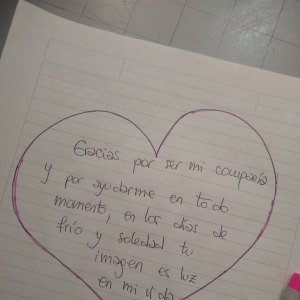 Gracias por ser mi compañia
y por ayudarme en todo
momento, en los dias de
frío y soledad tu
imagen es luz
en mi vida